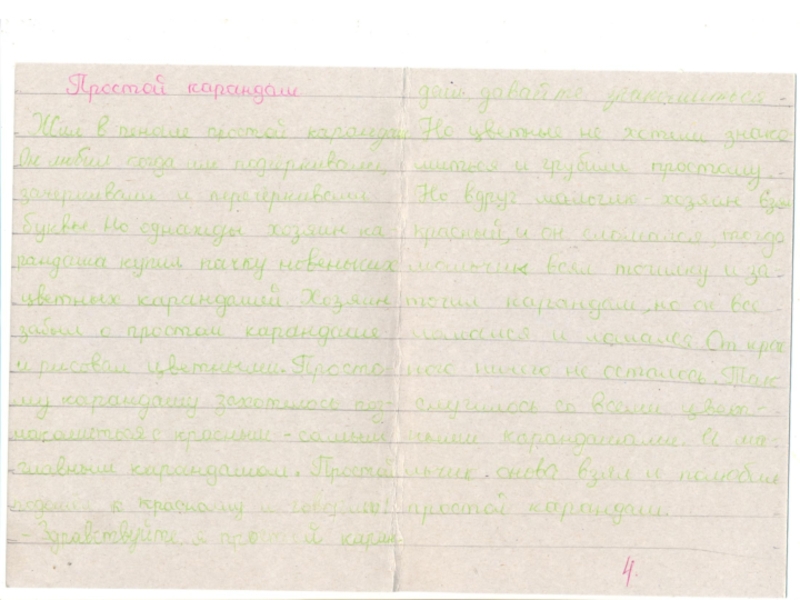 Простой карандаш
Жил в пенале простой карандаш
Он любил когда им подчёркивали,
зачёркивали и перечёркивали
буквы. Но однажды хозяин ка-
рандаша купил пачку новеньких
цветных карандашей. Хозяин
забыл о простом карандаше
и рисовал цветными. Просто-
му карандашу захотелось поз-
накомиться с красным - самым
главным карандашом. Простой
подошёл к красному и говорит:
- Здравствуйте, я простой каран-
даш давайте знакомиться.
Но цветные не хотели знако-
миться и грубили простому.
Но вдруг мальчик - хозяин взял
красный, и он сломался, тогда
мальчик взял точилку и за-
точил карандаш, но он всё
ломался и ломался. От крас-
ного ничего не осталось. Так
случилось со всеми цвет-
ными карандашами. А ма-
льчик снова взял и полюбил
простой карандаш.
4.